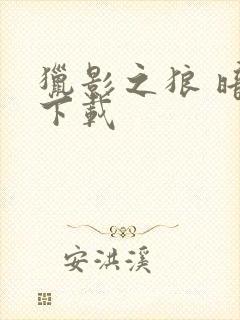 獵影之狼
下載
安洪溪